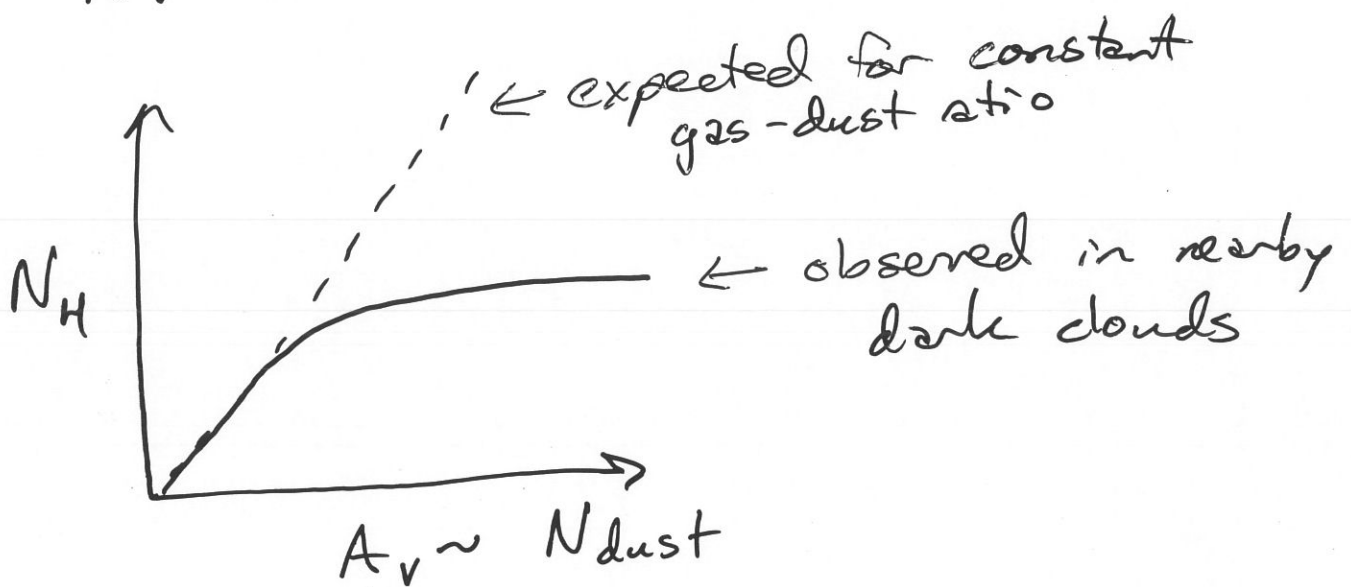 ← expected for constant
gas-dust atio
N_H
← observed in nearby
dark clouds
A_v ~ N dust